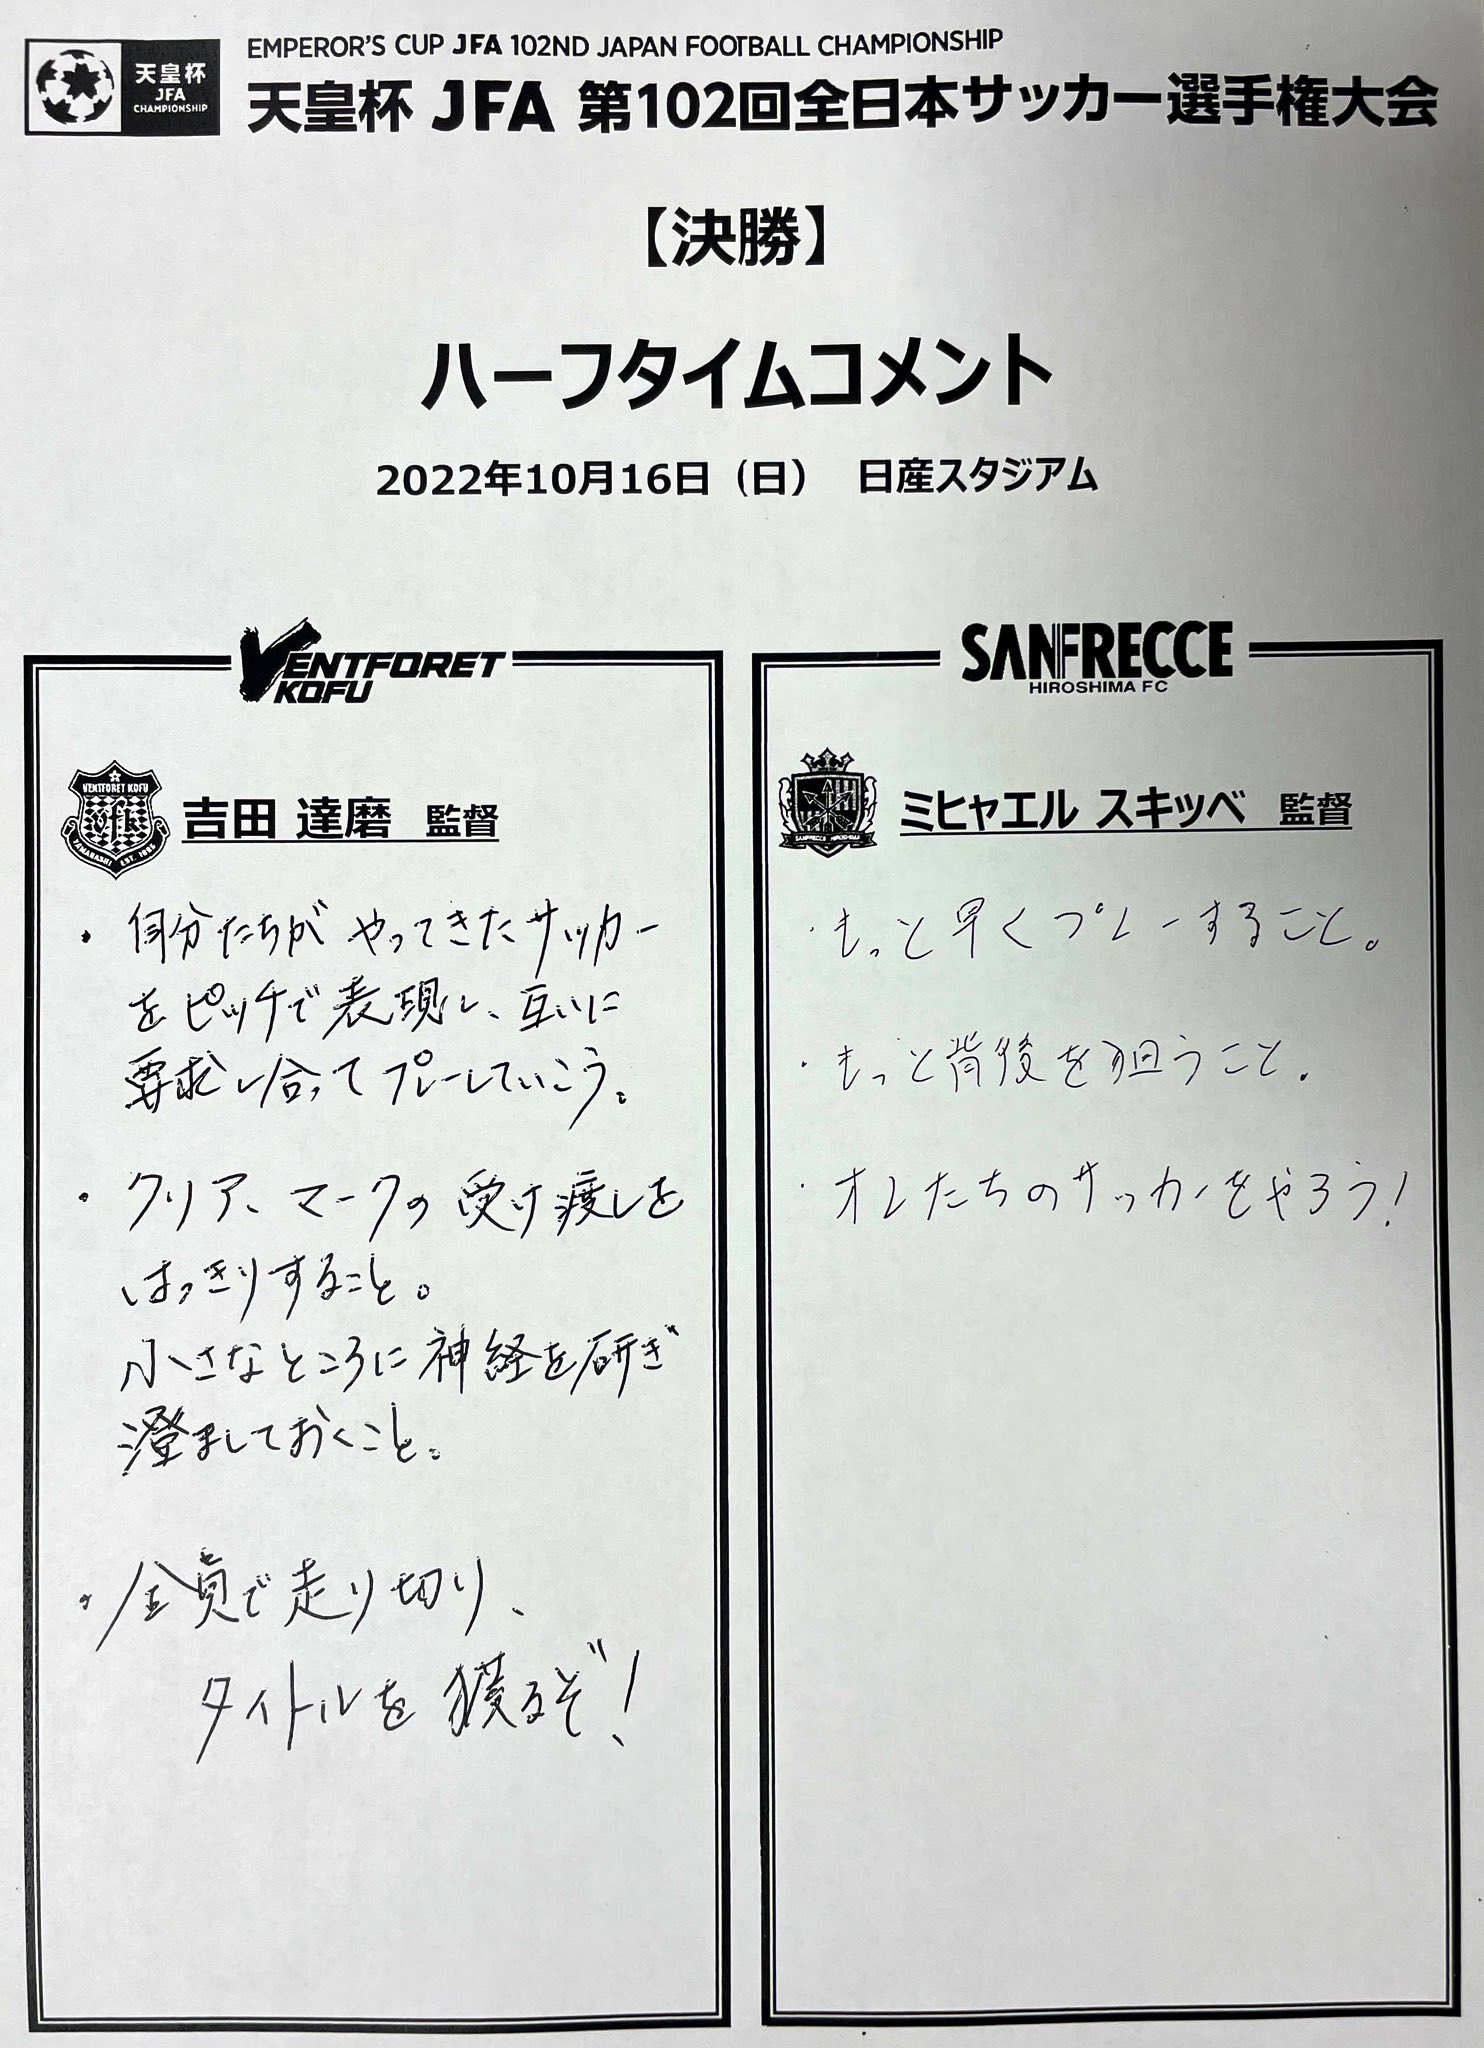 天皇杯
JFA
CHAMPIONSHIP
EMPEROR'S CUP JFA 102ND JAPAN FOOTBALL CHAMPIONSHIP
天皇杯 JFA 第102回全日本サッカー選手権大会
【決勝】
ハーフタイムコメント
2022年10月16日（日） 日産スタジアム
VENTFORET
KOFU
VENTFORET KOFU
vfk
YAMANASHI EST. 1965
吉田 達磨 監督
・自分たちが やってきたサッカー
をピッチで表現し、互いに
要求し合ってプレーしていこう。
・クリア、マークの受け渡しを
はっきりすること。
小さなところに神経を研ぎ
澄ましておくこと。
・全員で走り切り、
タイトルを獲るぞ!
SANFRECCE
HIROSHIMA FC
SANFRECCE HIROSHIMA
ミヒャエル スキッベ 監督
・もっと早くプレーすること。
・もっと背後を狙うこと。
・オレたちのサッカーをやろう!